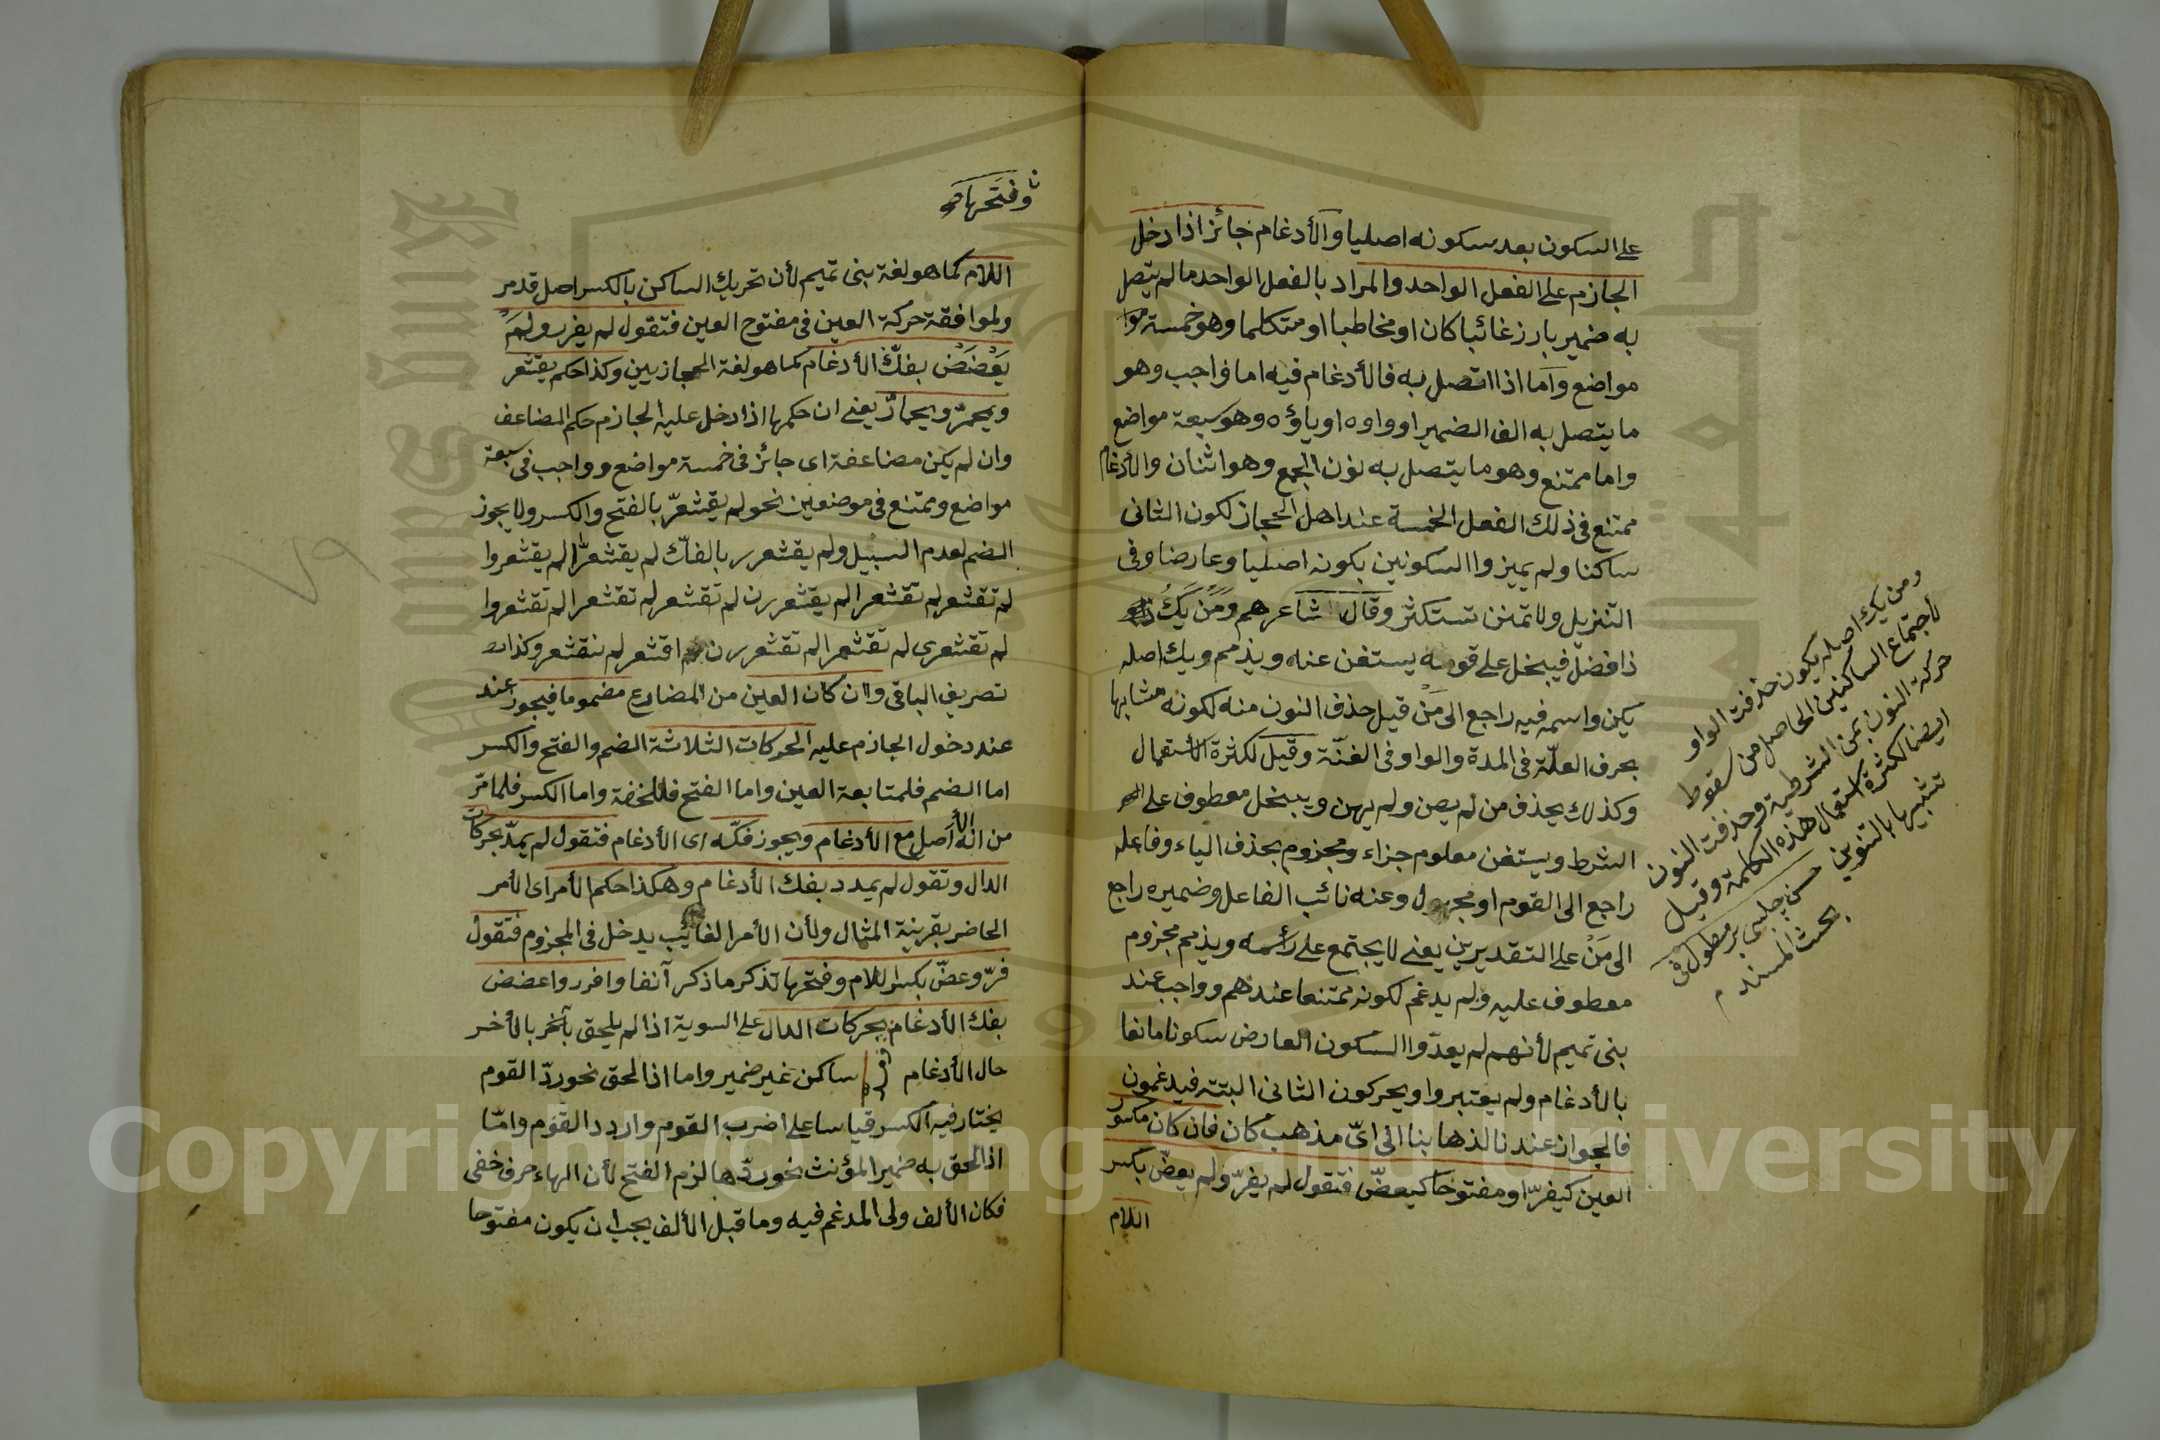 على السكون بعد سكونه اصليا والأدغام جائز اذا دخل
الجازم على الفعل الواحد والمراد بالفعل الواحد ما لم يتصل
به ضمير بارز غائبا كان او مخاطبا او متكلما وهو خمسة
مواضع واما اذا اتصل به فالأدغام فيه اما واجب وهو
ما يتصل به الف الضمير او واوه او ياؤه وهو سبعة مواضع
واما ممتنع وهو ما يتصل به نون الجمع وهو اثنان والأدغام
ممتنع فى ذلك الفعل الخمسة عند اهل الحجاز لكون الثانى
ساكنا ولم يميزوا السكونين بكونه اصليا وعارضا وفى
التنزيل ولا تمنن تستكثر وقال شاعرهم ومَن يَكُ
ذا فضل فيبخل على قومه يستغن عنه ويذمم ويك اصله
يكن واسمه فيه راجع الى مَنْ قيل حذف النون منه لكونه مشابها
بحرف العلّة فى المدة والواو فى الغنّة وقيل لكثرة الأستعمال
وكذلك يحذف من لم يصن ولم يهن ويبخل معطوف على
الشرط ويستغن معلوم جزاء ومجزوم بحذف الياء وفاعله
راجع الى القوم او مجهول وعنه نائب الفاعل وضميره راجع
الى مَنْ على التقديرين يعنى لا يجتمع على رأسه ويذمم مجزوم
معطوف عليه ولم يدغم لكونه ممتنعا عندهم وواجب عند
بنى تميم لأنهم لم يعدّوا السكون العارض سكونا مانعا
بالأدغام ولم يعتبروا ويحركون الثانى البتة فيدغمون
فالجواز عندنا لذهابنا الى اىّ مذهب كان فان كان مكسور
العين كيفرّ او مفتوحا كيعضّ فتقول لم يفرّ ولم يعضّ بكسر
اللام
ومن يك اصله يكون حذفت الواو
لأجتماع الساكنين الحاصل من سقوط
حركة النون بمن الشرطية وحذفت النون
ايضا لكثرة استعمال هذه الكلمة وقيل
تشبيها بالتنوين حسن چلبى بر مطول فى
بحث المسند
وفتحها صح
اللام كما هو لغة بنى تميم لأن تحريك الساكن بالكسر اصل قد مر
ولموافقة حركة العين فى مفتوح العين فتقول لم يفرر ولم
يَعْضَضْ بفكّ الأدغام كما هو لغة الحجازيين وكذا حكم يقشعر
ويحمرّ ويحمارّ يعنى ان حكمها اذا دخل عليه الجازم حكم المضاعف
وان لم يكن مضاعفة اى جائز فى خمسة مواضع وواجب فى سبعة
مواضع وممتنع فى موضعين نحو لم يقشعرّ بالفتح والكسر ولا يجوز
الضم لعدم السبيل ولم يقشعرر بالفك لم يقشعرّا لم يقشعروا
لم تقشعر لم تقشعرا لم يقشعررن لم تقشعر لم تقشعرا لم تقشعروا
لم تقشعرى لم تقشعرا لم تقشعررن لم اقشعر لم نقشعر وكذا
تصريف الباقى وان كان العين من المضارع مضموما فيجوز عند
عند دخول الجازم عليه الحركات الثلاثة الضم والفتح والكسر
اما الضم فلمتابعة العين واما الفتح فللخفة واما الكسر فلما مرّ
من انه الأصل مع الأدغام ويجوز فكّه اى الأدغام فتقول لم يمدّ بحركات
الدال وتقول لم يمدد بفك الأدغام وهكذا حكم الأمر اى الأمر
الحاضر بقرينة المثال ولأن الأمر الغائب يدخل فى المجزوم فتقول
فرّ وعضّ بكسر اللام وفتحها تذكر ما ذكر آنفا وافرر واعضض
بفك الأدغام بحركات الدال على السوية اذا لم يلحق بأخر بالأخر
حال الأدغام ساكن غير ضمير واما اذا لحق نحو ردّ القوم
يختار فيه الكسر قياسا على اضرب القوم واردد القوم وامّا
اذا لحق به ضمير المؤنث نحو ردّها لزم الفتح لأن الهاء حرف خفى
فكان الألف ولى المدغم فيه وما قبل الألف يجب ان يكون مفتوحا
Copyright © King Saud University
King Saud
جامعة الملك